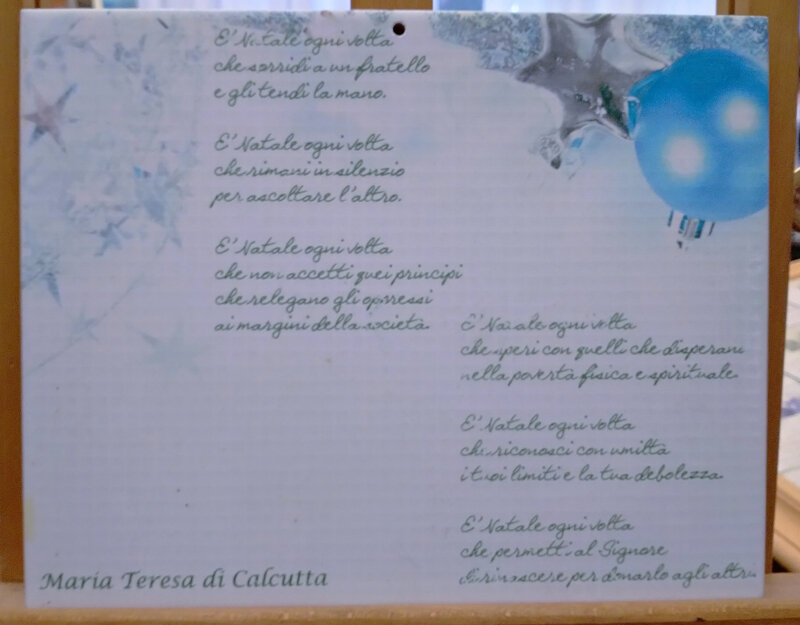 E' Natale ogni volta
che sorridi a un fratello
e gli tendi la mano.
E' Natale ogni volta
che rimani in silenzio
per ascoltare l'altro.
E' Natale ogni volta
che non accetti quei principi
che relegano gli oppressi
ai margini della società.
E' Natale ogni volta
che speri con quelli che disperano
nella povertà fisica e spirituale.
E' Natale ogni volta
che riconosci con umiltà
i tuoi limiti e la tua debolezza.
E' Natale ogni volta
che permetti al Signore
di rinascere per donarlo agli altri.
Maria Teresa di Calcutta